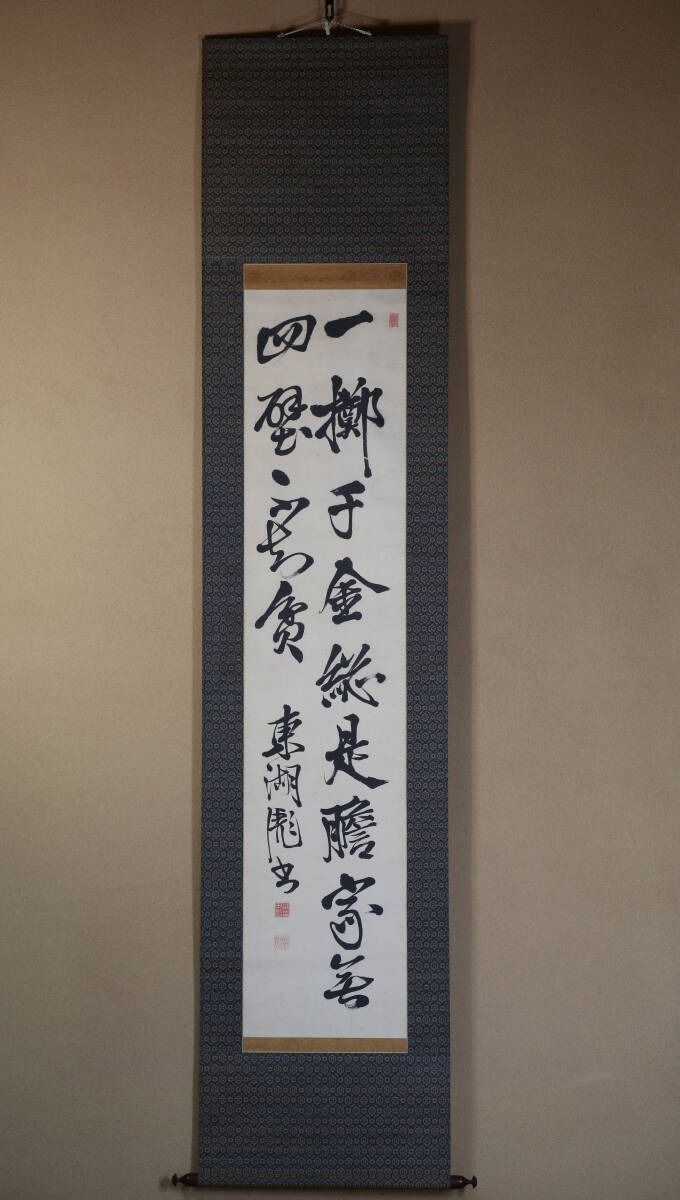 一擲千金総是膽家無
四壁不知貧 東湖彪書